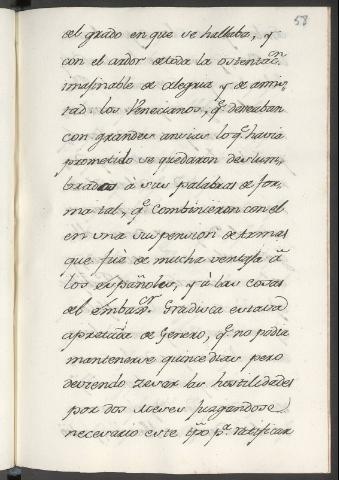 58
del grado en que se hallaba, y
con el ardor de toda la ostentac.ⁿ
imaginable de alegria y de amis-
tad: los Venecianos, q.ᵉ deseaban
con grandes ansias lo q.ᵉ havia
prometido se quedaron deslum-
brados à sus palabras de for-
ma tal, q.ᵉ combinieron con el
en una suspension de Armas
que fuè de mucha ventaja à
los españoles, y à las cosas
del embax.ᵒʳ Gradisca estava
apretada de genero, q.ᵉ no podia
mantenerse quince dias pero
deviendo cesar las hostilidades
por dos meses juzgandose
necesario este tpõ p.ᵃ ratificar